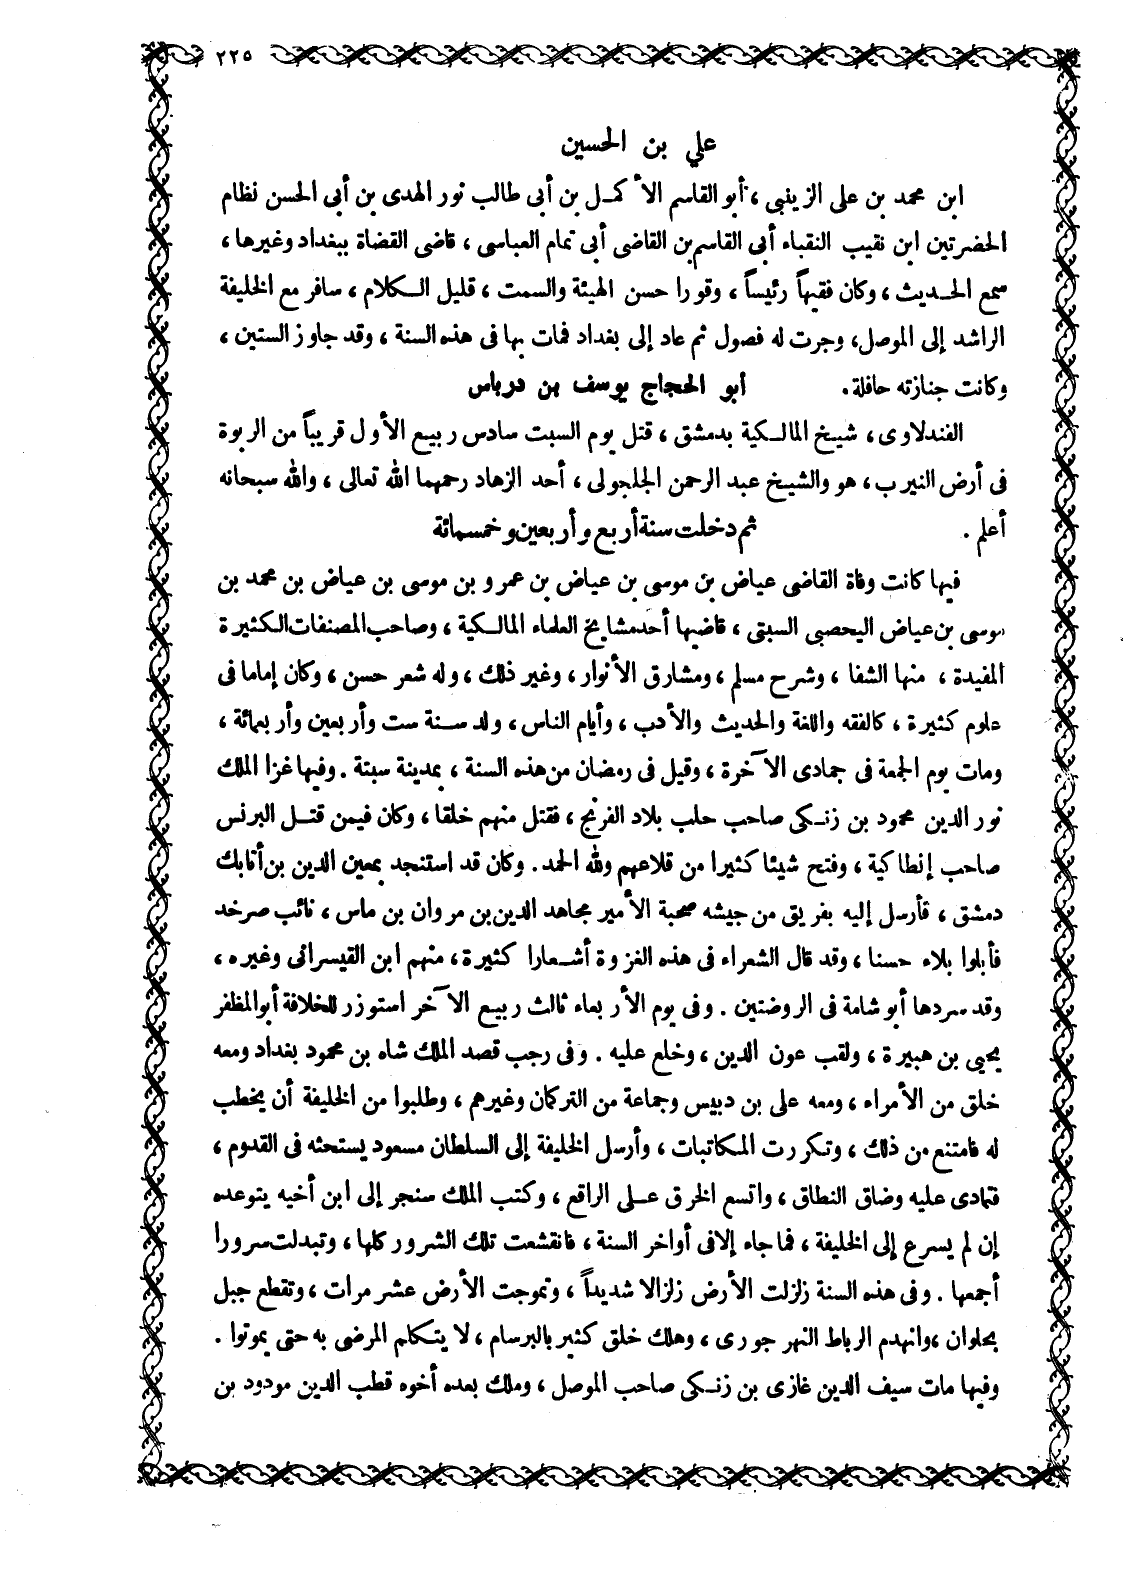 ٢٢٥
علي بن الحسين
ابن محمد بن على الزينبى ، أبو القاسم الأكمل بن أبى طالب نور الهدى بن أبى الحسن نظام
الحضرتين ابن نقيب النقباء أبى القاسم بن القاضى أبى تمام العباسى ، قاضى القضاة ببغداد وغيرها ،
سمع الحديث ، وكان فقيهاً رئيساً ، وقورا حسن الهيئة والسمت ، قليل الكلام ، سافر مع الخليفة
الراشد إلى الموصل ، وجرت له فصول ثم عاد إلى بغداد فمات بها فى هذه السنة ، وقد جاوز الستين ،
وكانت جنازته حافلة . أبو الحجاج يوسف بن درباس
الفندلاوى ، شيخ المالكية بدمشق ، قتل يوم السبت سادس ربيع الأول قريباً من الربوة
فى أرض النيرب ، هو والشيخ عبد الرحمن الجلجولى ، أحد الزهاد رحمهما الله تعالى ، والله سبحانه
أعلم . ثم دخلت سنة أربع وأربعين وخمسمائة
فيها كانت وفاة القاضى عياض بن موسى بن عياض بن عمرو بن موسى بن عياض بن محمد بن
موسى بن عياض اليحصبى السبتى ، قاضيها أحد مشايخ العلماء المالكية ، وصاحب المصنفات الكثيرة
المفيدة ، منها الشفا ، وشرح مسلم ، ومشارق الأنوار ، وغير ذلك ، وله شعر حسن ، وكان إماما فى
علوم كثيرة ، كالفقه واللغة والحديث والأدب ، وأيام الناس ، ولد سنة ست وأربعين وأربعمائة ،
ومات يوم الجمعة فى جمادى الآخرة ، وقيل فى رمضان من هذه السنة ، بمدينة سبتة . وفيها غزا الملك
نور الدين محمود بن زنكى صاحب حلب بلاد الفرنج ، فقتل منهم خلقا ، وكان فيمن قتل البرنس
صاحب إنطاكية ، وفتح شيئا كثيرا من قلاعهم ولله الحمد . وكان قد استنجد بمعين الدين بن أتابك
دمشق ، فأرسل إليه بفريق من جيشه صحبة الأمير مجاهد الدين بن مروان بن ماس ، نائب صرخد
فأبلوا بلاء حسنا ، وقد قال الشعراء فى هذه الغزوة أشعارا كثيرة ، منهم ابن القيسرانى وغيره ،
وقد سردها أبو شامة فى الروضتين . وفى يوم الأربعاء ثالث ربيع الآخر استوزر للخلافة أبو المظفر
يحيى بن هبيرة ، ولقب عون الدين ، وخلع عليه . وفى رجب قصد الملك شاه بن محمود بغداد ومعه
خلق من الأمراء ، ومعه على بن دبيس وجماعة من التركمان وغيرهم ، وطلبوا من الخليفة أن يخطب
له فامتنع من ذلك ، وتكررت المكاتبات ، وأرسل الخليفة إلى السلطان مسعود يستحثه فى القدوم ،
فتمادى عليه وضاق النطاق ، واتسع الخرق على الراقع ، وكتب الملك سنجر إلى ابن أخيه يتوعده
إن لم يسرع إلى الخليفة ، فما جاء إلا فى أواخر السنة ، فانقشعت تلك الشرور كلها ، وتبدلت سرورا
أجمعها . وفى هذه السنة زلزلت الأرض زلزالا شديداً ، وتموجت الأرض عشر مرات ، وتقطع جبل
بحلوان ، وانهدم الرباط النهر جورى ، وهلك خلق كثير بالبرسام ، لا يتكلم المرضى به حتى يموتوا .
وفيها مات سيف الدين غازى بن زنكى صاحب الموصل ، وملك بعده أخوه قطب الدين مودود بن